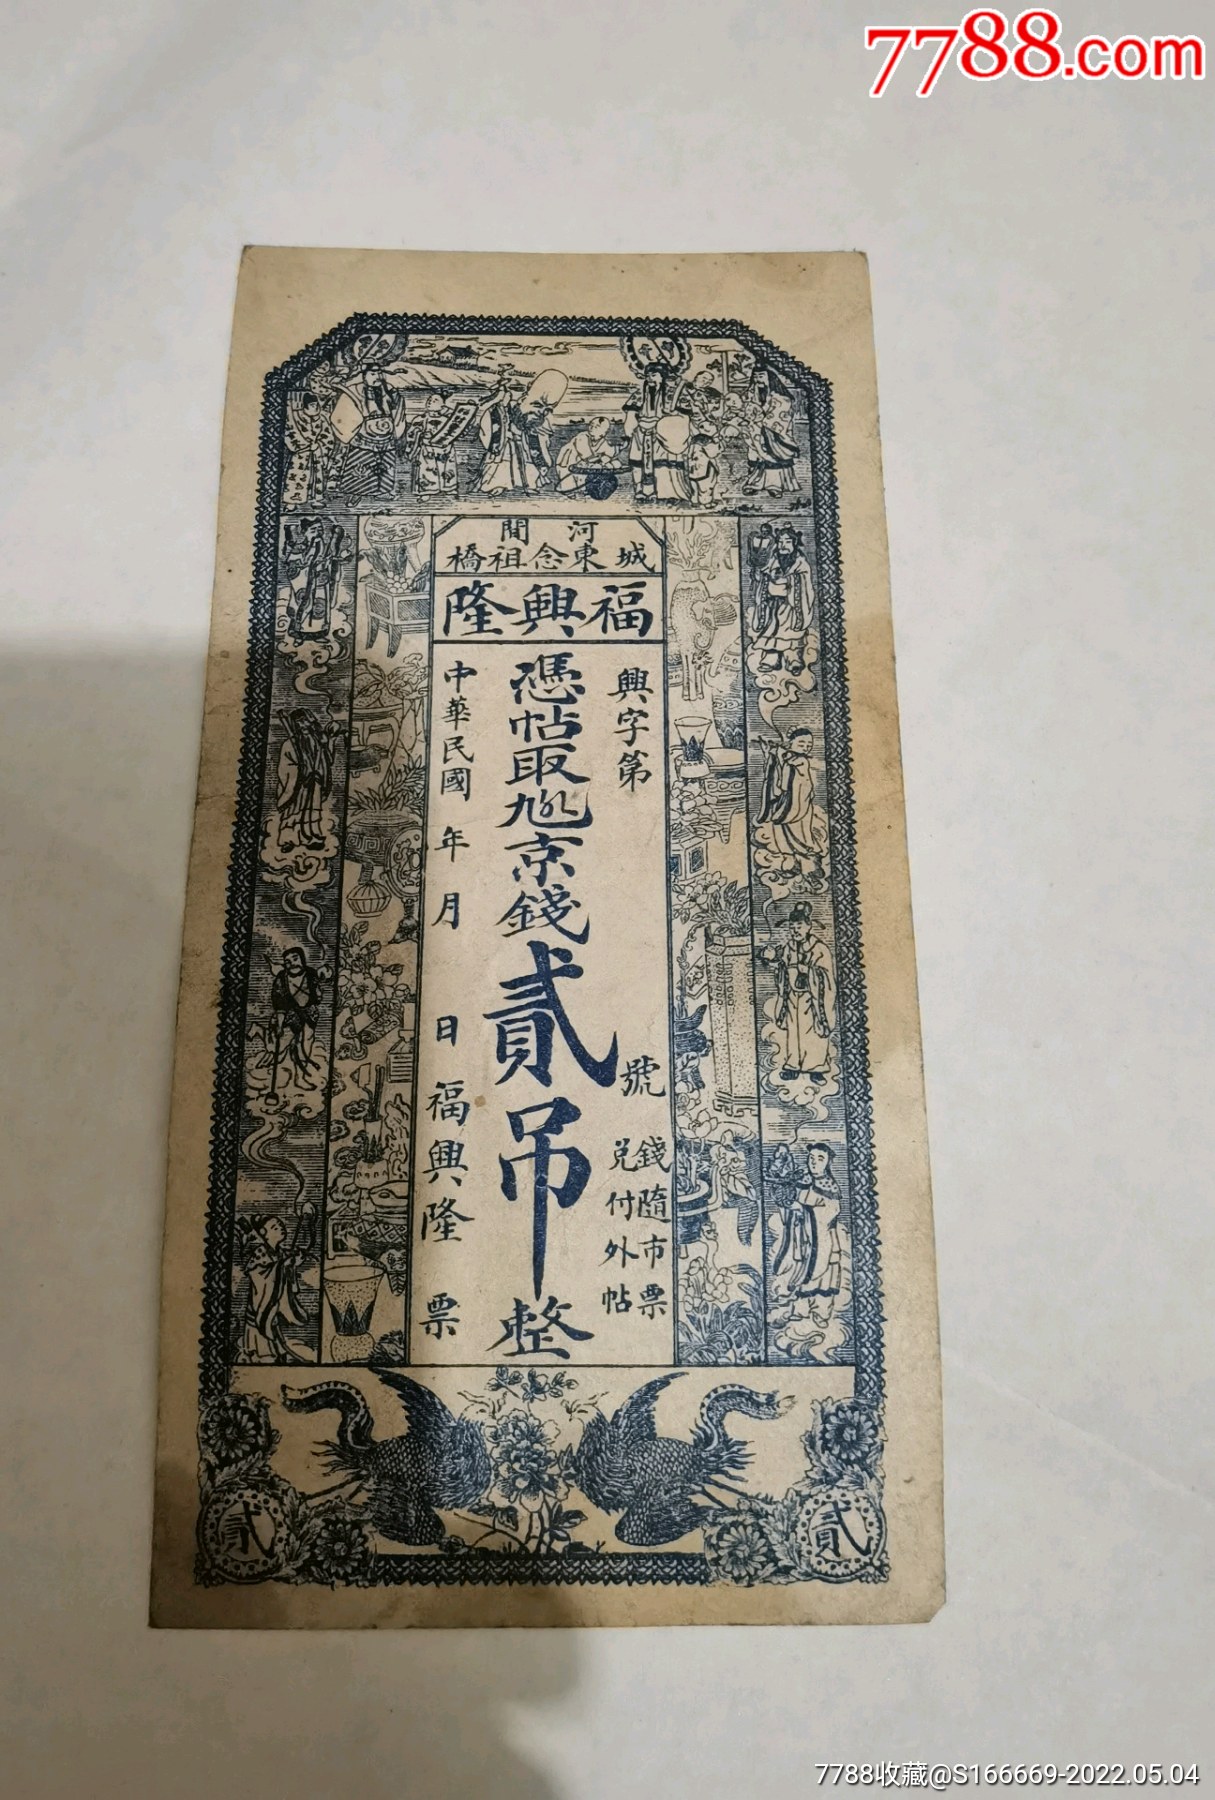 7788.com
河間
城東念祖橋
福興隆
興字第 號
錢隨市票
兌付外帖
憑帖取 京錢貳吊整
中華民國 年 月 日 福興隆 票
貳
貳
7788收藏@S166669-2022.05.04